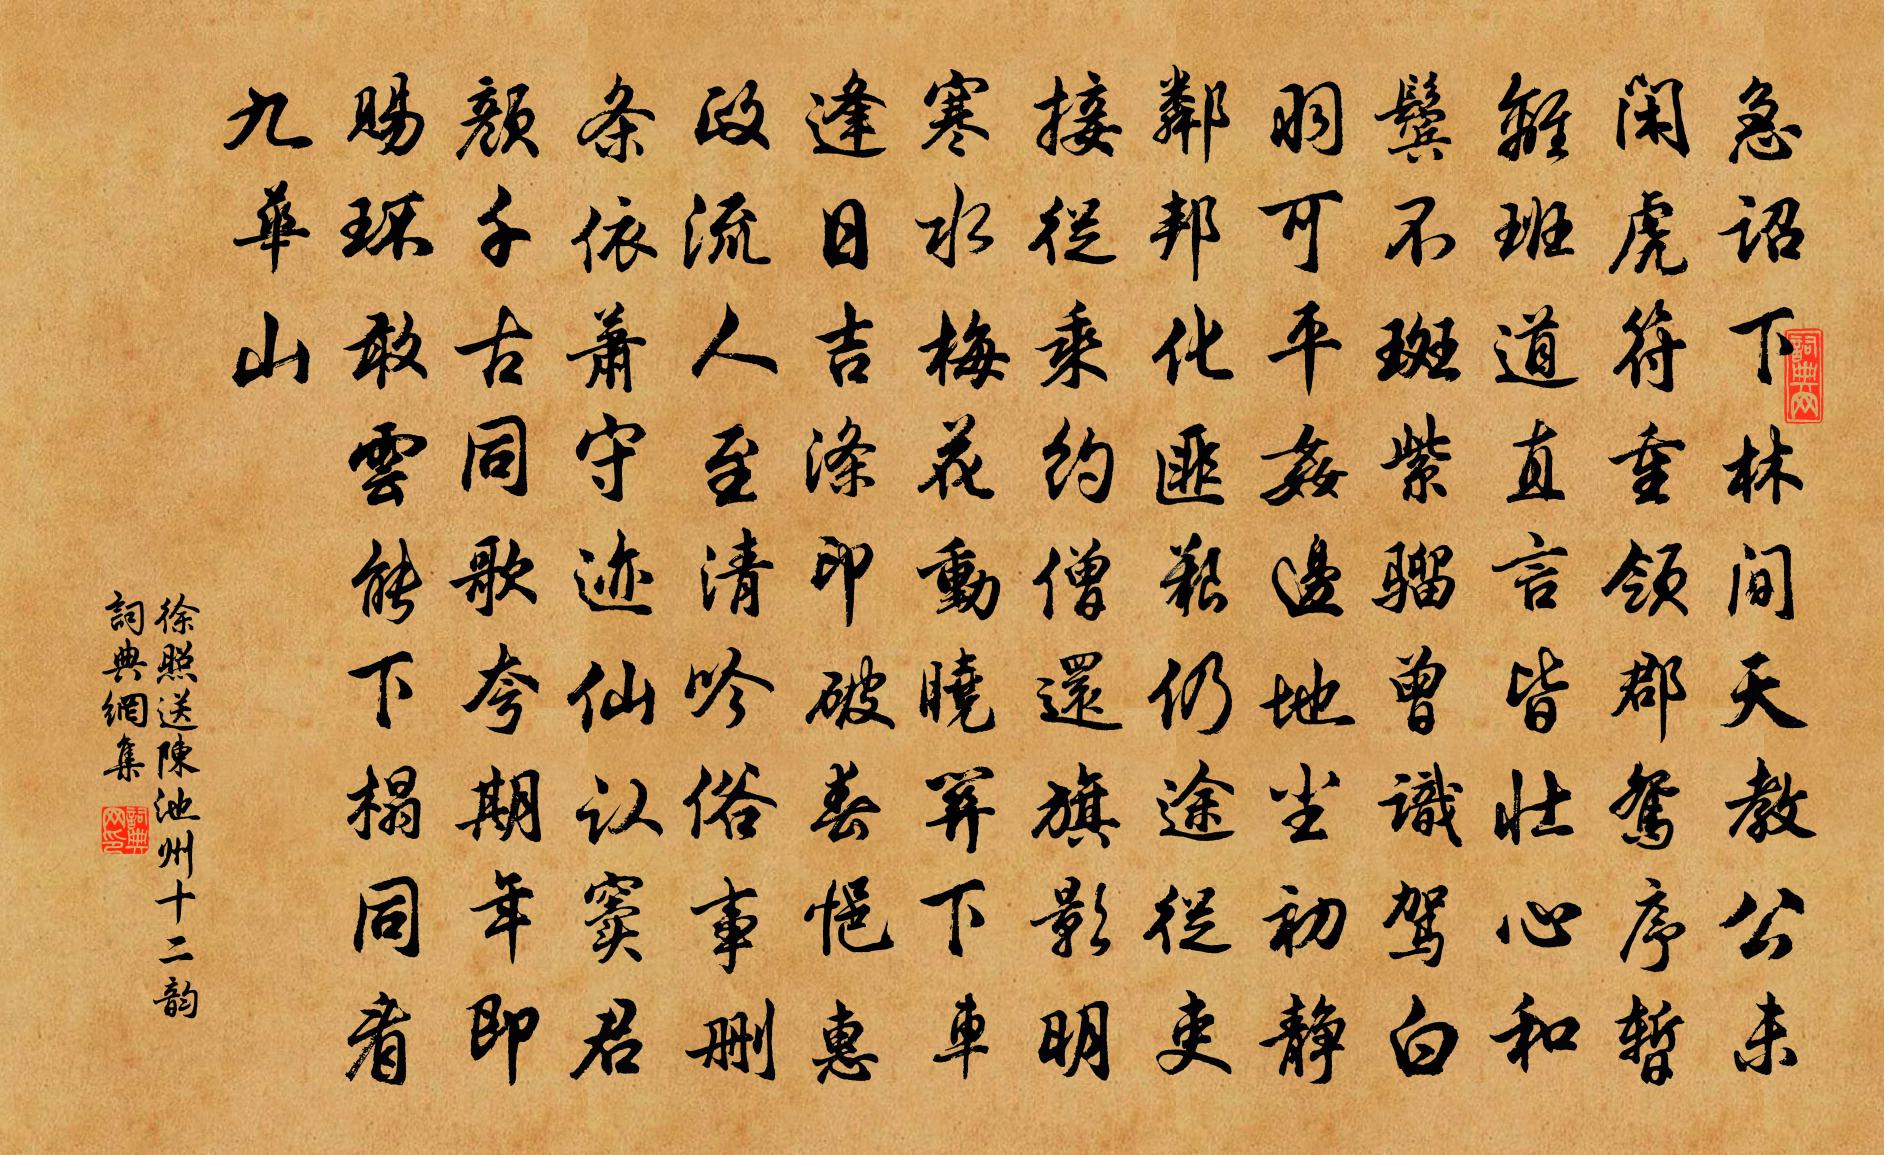 急詔下林間天教公未
閑虎符重領郡鴛序暫
離班道直言皆壯心和
鬢不斑紫騮曾識駕白
羽可平姦邊地尘初靜
鄰邦化匪艱仍途從吏
接從乘約僧還旗影明
寒水梅花動曉笄下車
逢日吉滌印破春悭惠
政流人至清吟俗事删
条依萧守迹仙认窦君
顏千古同歌夸期年即
賜环敢雲能下榻同看
九華山
徐照送陳池州十二韵
詞典網集
詞典网
詞典网印